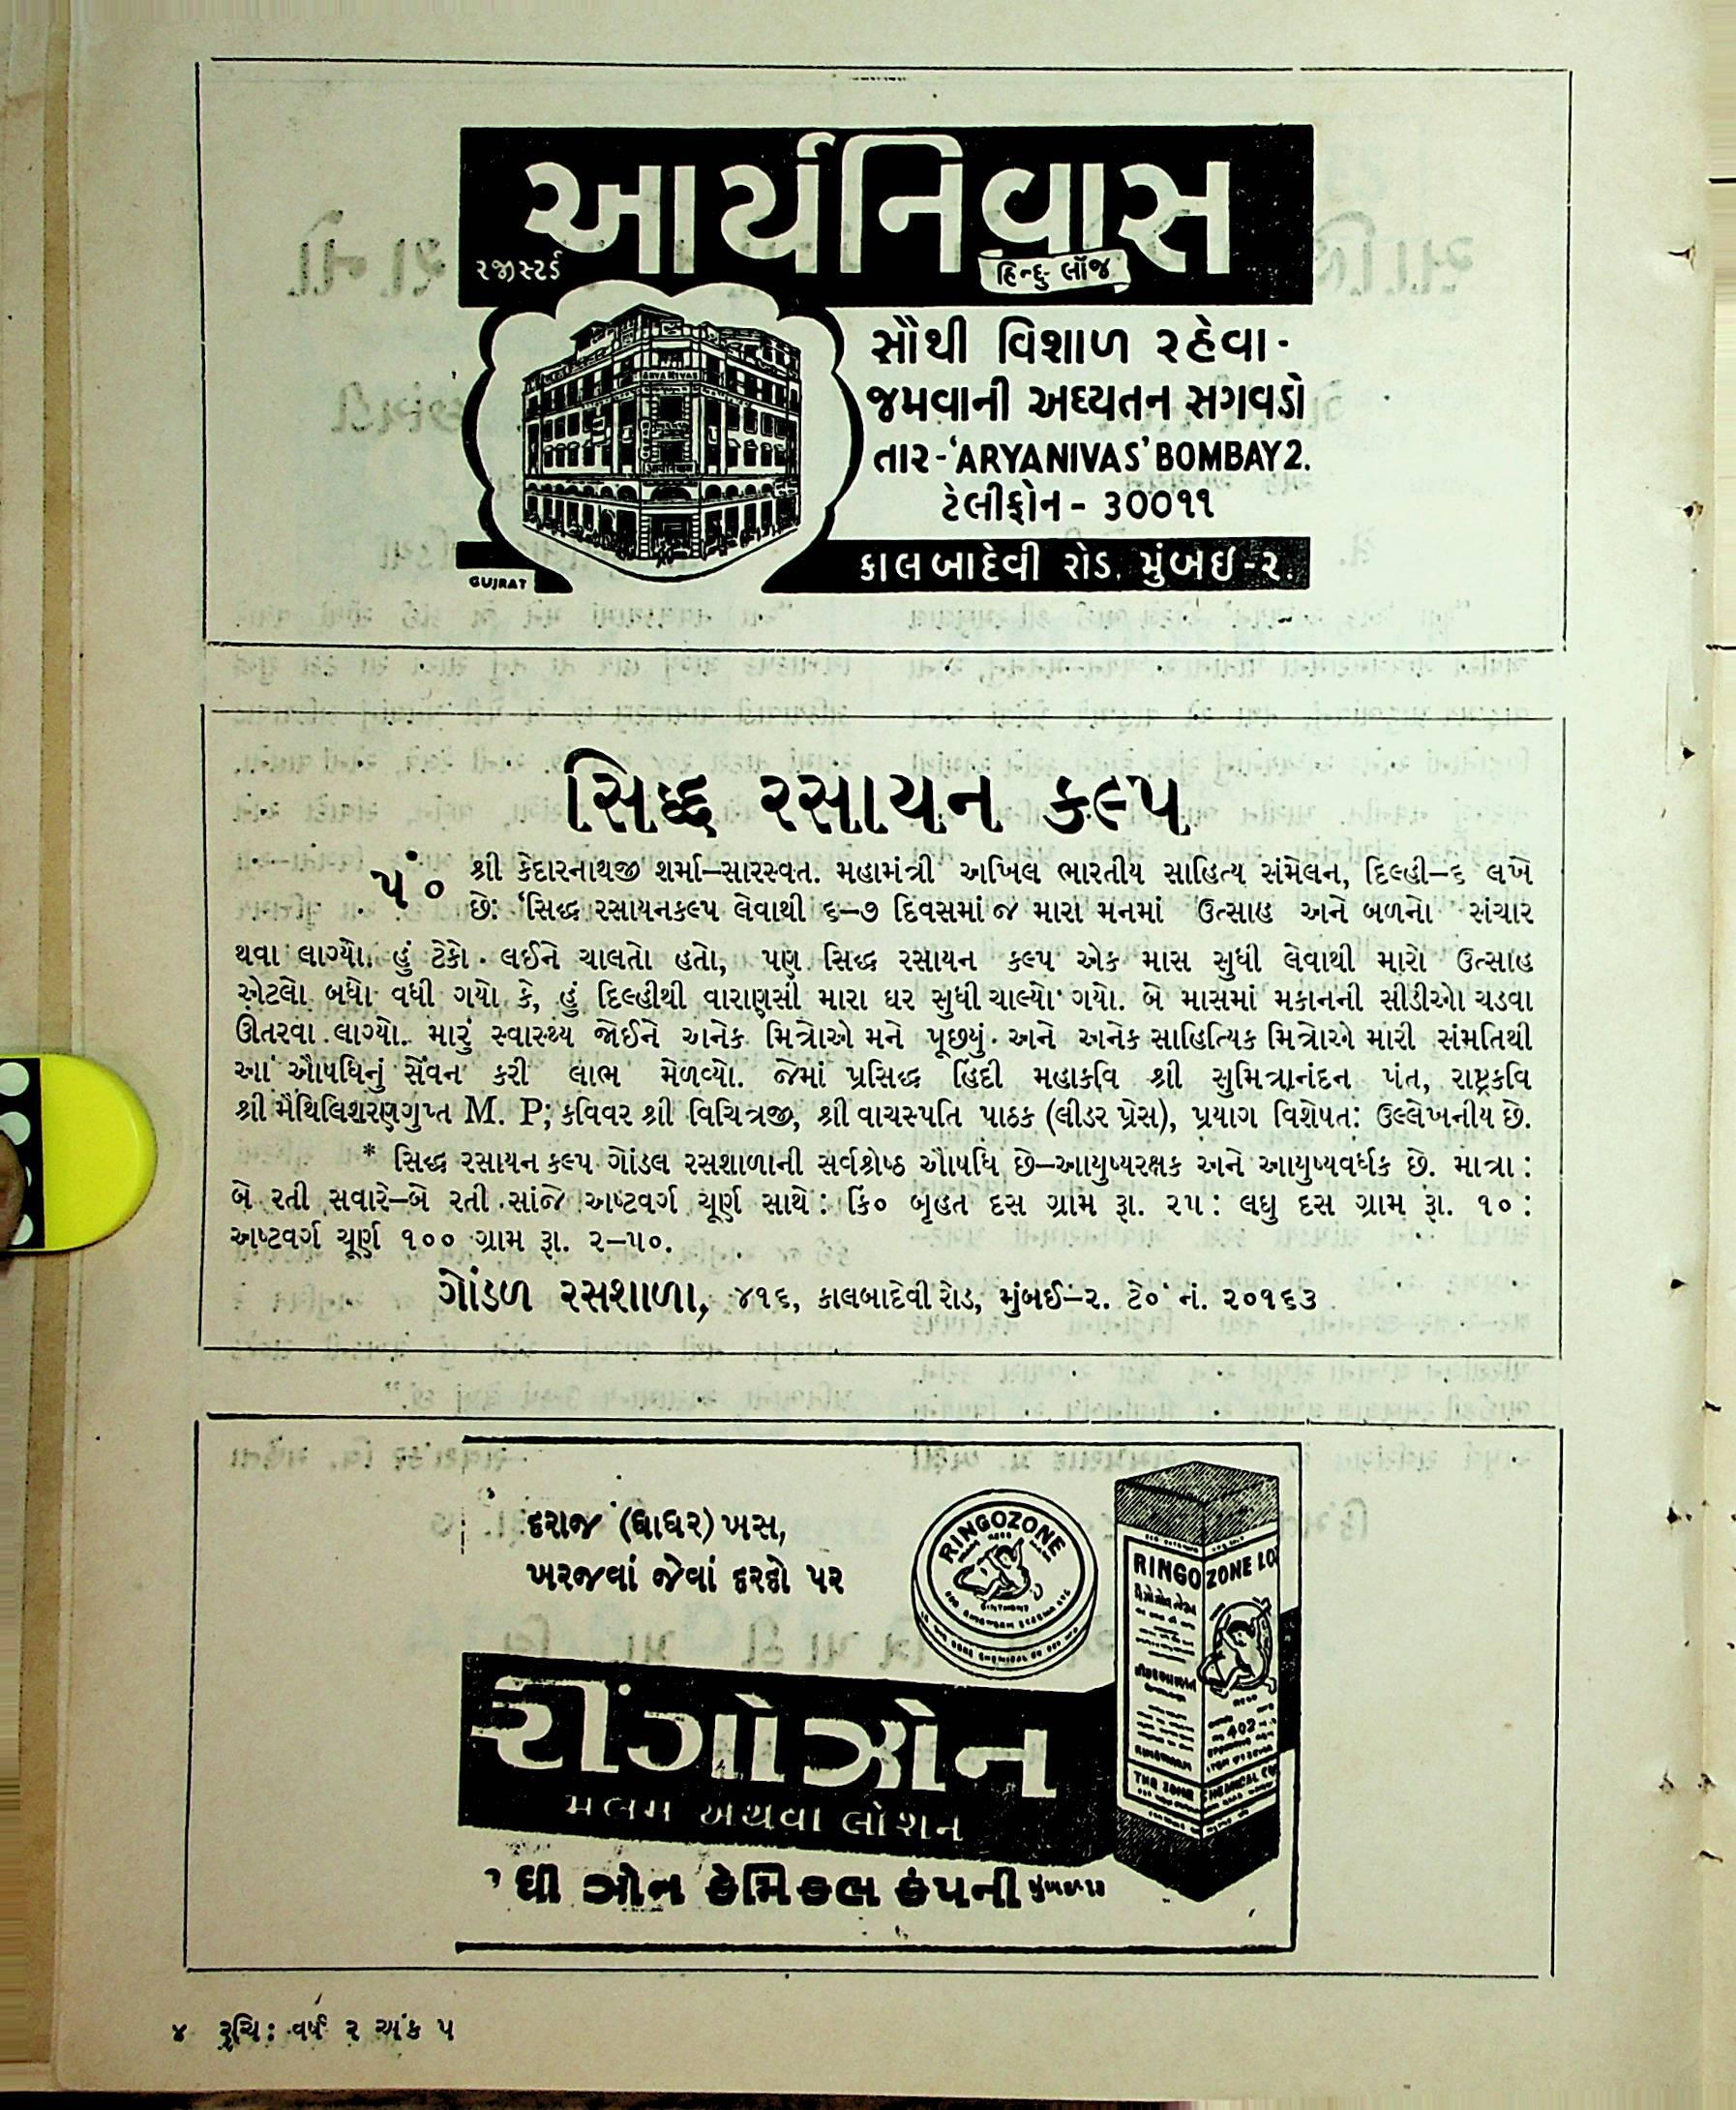 આર્યનિવાસ
રજીસ્ટર્ડ
હિન્દુ લૉજ
ARYANIVAS
સૌથી વિશાળ રહેવા-
જમવાની અદ્યતન સગવડો
તાર-'ARYANIVAS' BOMBAY 2.
ટેલીફોન - ૩૦૦૧૧
GUJRAT
કાલબાદેવી રોડ, મુંબઇ-૨.
સિદ્ધ રસાયન કલ્પ
પં૦ શ્રી કેદારનાથજી શર્મા–સારસ્વત. મહામંત્રી અખિલ ભારતીય સાહિત્ય સંમેલન, દિલ્હી–૬ લખે
છે: 'સિદ્ધ રસાયનકલ્પ લેવાથી ૬–૭ દિવસમાં જ મારા મનમાં ઉત્સાહ અને બળનો સંચાર
થવા લાગ્યો. હું ટેકો લઈને ચાલતો હતો, પણ સિદ્ધ રસાયન કલ્પ એક માસ સુધી લેવાથી મારો ઉત્સાહ
એટલો બધો વધી ગયો કે, હું દિલ્હીથી વારાણસી મારા ઘર સુધી ચાલ્યો ગયો. બે માસમાં મકાનની સીડીઓ ચડવા
ઊતરવા લાગ્યો. મારું સ્વાસ્થ્ય જોઈને અનેક મિત્રોએ મને પૂછયું. અને અનેક સાહિત્યિક મિત્રોએ મારી સંમતિથી
આ ઔષધિનું સેવન કરી લાભ મેળવ્યો. જેમાં પ્રસિદ્ધ હિંદી મહાકવિ શ્રી સુમિત્રાનંદન પંત, રાષ્ટ્રકવિ
શ્રી મૈથિલિશરણગુપ્ત M. P; કવિવર શ્રી વિચિત્રજી, શ્રી વાચસ્પતિ પાઠક (લીડર પ્રેસ), પ્રયાગ વિશેષત: ઉલ્લેખનીય છે.
* સિદ્ધ રસાયન કલ્પ ગોંડલ રસશાળાની સર્વશ્રેષ્ઠ ઔષધિ છે–આયુષ્યરક્ષક અને આયુષ્યવર્ધક છે. માત્રા :
બે રતી સવારે–બે રતી સાંજે અષ્ટવર્ગ ચૂર્ણ સાથે : કિં૦ બૃહત દસ ગ્રામ રૂા. ૨૫ : લઘુ દસ ગ્રામ રૂા. ૧૦ :
અષ્ટવર્ગ ચૂર્ણ ૧૦૦ ગ્રામ રૂા. ૨–૫૦.
ગોંડળ રસશાળા, ૪૧૬, કાલબાદેવી રોડ, મુંબઈ–૨. ટે૦ નં. ૨૦૧૬૩
દરાજ (ધાધર) ખસ,
ખરજવાં જેવાં દરદો પર
RINGOZONE
OINTMENT
RINGOZONE LO
402
રીંગોઝોન
મલમ અથવા લોશન
ધી ઝોન કેમિકલ કંપની
૪ રૂચિ: વર્ષ ૨ અંક ૫